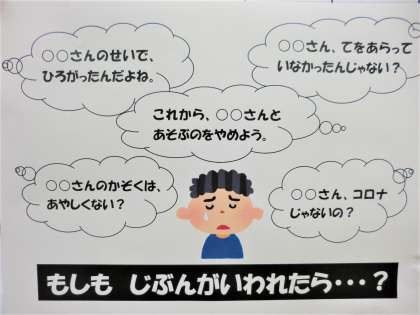 ○○さんのせいで、
ひろがったんだよね。
○○さん、てをあらって
いなかったんじゃない？
これから、○○さんと
あそぶのをやめよう。
○○さんのかぞくは、
あやしくない？
○○さん、コロナ
じゃないの？
もしも じぶんがいわれたら・・・？